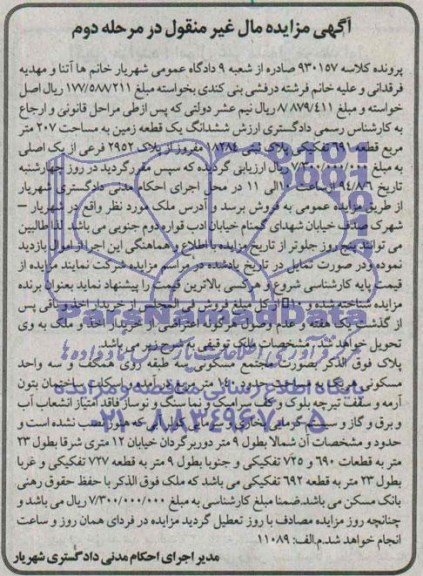 آگهی مزایده مال غیر منقول در مرحله دوم
پرونده کلاسه ۹۳۰۱۵۷ صادره از شعبه ۹ دادگاه عمومی شهریار خانم ها آتنا و مهدیه
فرقدانی و علیه خانم فرشته درفشی بنی کندی بخواسته مبلغ ۱۷۷/۵۸۸/۲۱۱ ریال اصل
خواسته و مبلغ ۸/۸۷۹/۴۱۱ ریال نیم عشر دولتی که پس ازطی مراحل قانونی و ارجاع
به کارشناس رسمی دادگستری ارزش ششدانگ یک قطعه زمین به مساحت ۲۰۷ متر
مربع قطعه ۶۹۱ تفکیکی پلاک ثبتی ۱۸۲۸۴ مفروز از پلاک ۲۹۵۲ فرعی از یک اصلی
به مبلغ ۷/۳۰۰/۰۰۰/۰۰۰ ریال ارزیابی گردیده که سپس مقرر گردید در روز چهارشنبه
تاریخ ۹۴/۸/۶ از ساعت ۱۰ الی ۱۱ در محل اجرای احکام مدنی دادگستری شهریار
از طریق مزایده عمومی به فروش برسد و آدرس ملک مورد نظر واقع در شهریار –
شهرک صدف خیابان شهدای گمنام خیابان ادب قواره دوم جنوبی می باشد. لذا طالبین
می توانند پنج روز جلوتر از تاریخ مزایده با اطلاع و هماهنگی این اجرا از اموال بازدید
نموده و در صورت تمایل در تاریخ یادشده در مراسم مزایده شرکت نمایند مزایده از
قیمت پایه کارشناسی شروع و هرکسی بالاترین قیمت را پیشنهاد نماید بعنوان برنده
مزایده شناخته شده و ۱۰٪ از کل مبلغ فروش فی المجلس از خریدار اخذ و باقی پس
از گذشت یک هفته و عدم وصول هرگونه اعتراضی از خریدار اخذ و ملک به وی
تحویل خواهد شد. مشخصات ملک توقیفی به شرح زیر می باشد.
پلاک فوق الذکر بصورت مجتمع مسکونی سه طبقه روی همکف و سه واحد
مسکونی هریک به مساحت حدود ۱۰۵ متر مربع درآمده، اسکلت ساختمان بتون
آرمه و سقف تیرچه بلوک و کف سرامیک و نما سنگ و نوساز فاقد امتیاز انشعاب آب
و برق و گاز و سیستم گرمایی بخاری و سرمایی کولر آبی که هنوز نصب نشده است و
حدود و مشخصات آن شمالا بطول ۹ متر دوربرگردان خیابان ۱۲ متری شرقا بطول ۲۳
متر به قطعات ۶۹۰ و ۷۲۵ تفکیکی و جنوبا بطول ۹ متر به قطعه ۷۲۷ تفکیکی و غربا
بطول ۲۳ متر به قطعه ۶۹۲ تفکیکی می باشد که ملک فوق الذکر با حفظ حقوق رهنی
بانک مسکن می باشد.ضمنا مبلغ کارشناسی به مبلغ ۷/۳۰۰/۰۰۰/۰۰۰ ریال می باشد و
چنانچه روز مزایده مصادف با روز تعطیل گردید مزایده در فردای همان روز و ساعت
انجام خواهد شد.م.الف: ۱۱۰۸۹
مدیر اجرای احکام مدنی دادگستری شهریار
ParsNamadData
۰۲۱-۸۸۳۴۹۶۷۰-۵